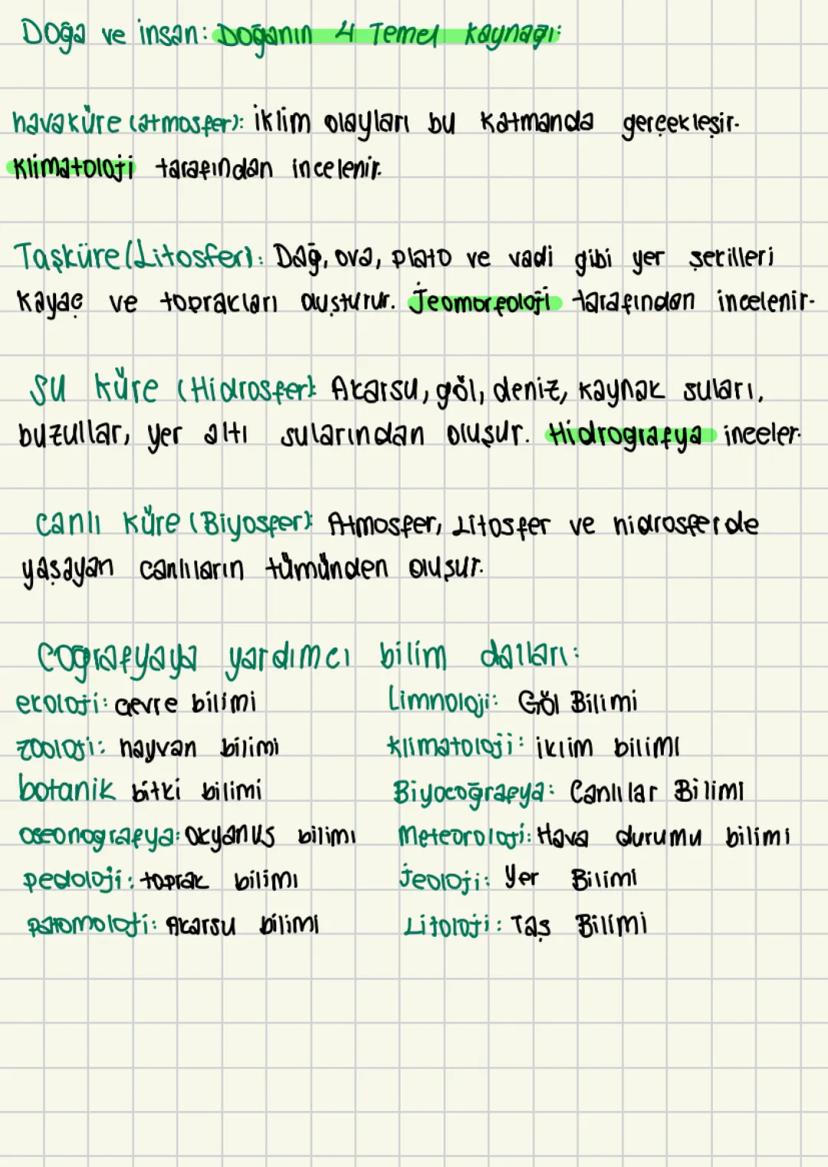 Doğa ve insan: Doğanın 4 Temel kaynağı:
havaküre (atmosfer): iklim olayları bu katmanda gerçekleşir.
Klimatoloji tarafından incelenir.
Taşküre (Litosfer): Dağ, ova, plato ve vadi gibi yer şekilleri
kayaç ve toprakları oluşturur. Jeomorfoloji tarafından incelenir.
Su küre (Hidrosfer): Akarsu, göl, deniz, kaynak suları,
buzullar, yer altı sularından oluşur. Hidrografya inceler.
Canlı küre (Biyosfer): Atmosfer, Litosfer ve hidrosferde
yaşayan canlıların tümünden oluşur.
Coğrafyaya yardımcı bilim dalları:
ekoloji: çevre bilimi Limnoloji: Göl Bilimi
zooloji: hayvan bilimi klimatoloji: iklim bilimi
botanik bitki bilimi Biyocoğrafya: Canlılar Bilimi
oseonografya: okyanus bilimi Meteoroloji: Hava durumu bilimi
pedoloji: toprak bilimi Jeoloji: Yer Bilimi
patomoloji: Akarsu bilimi Litoloji: Taş Bilimi